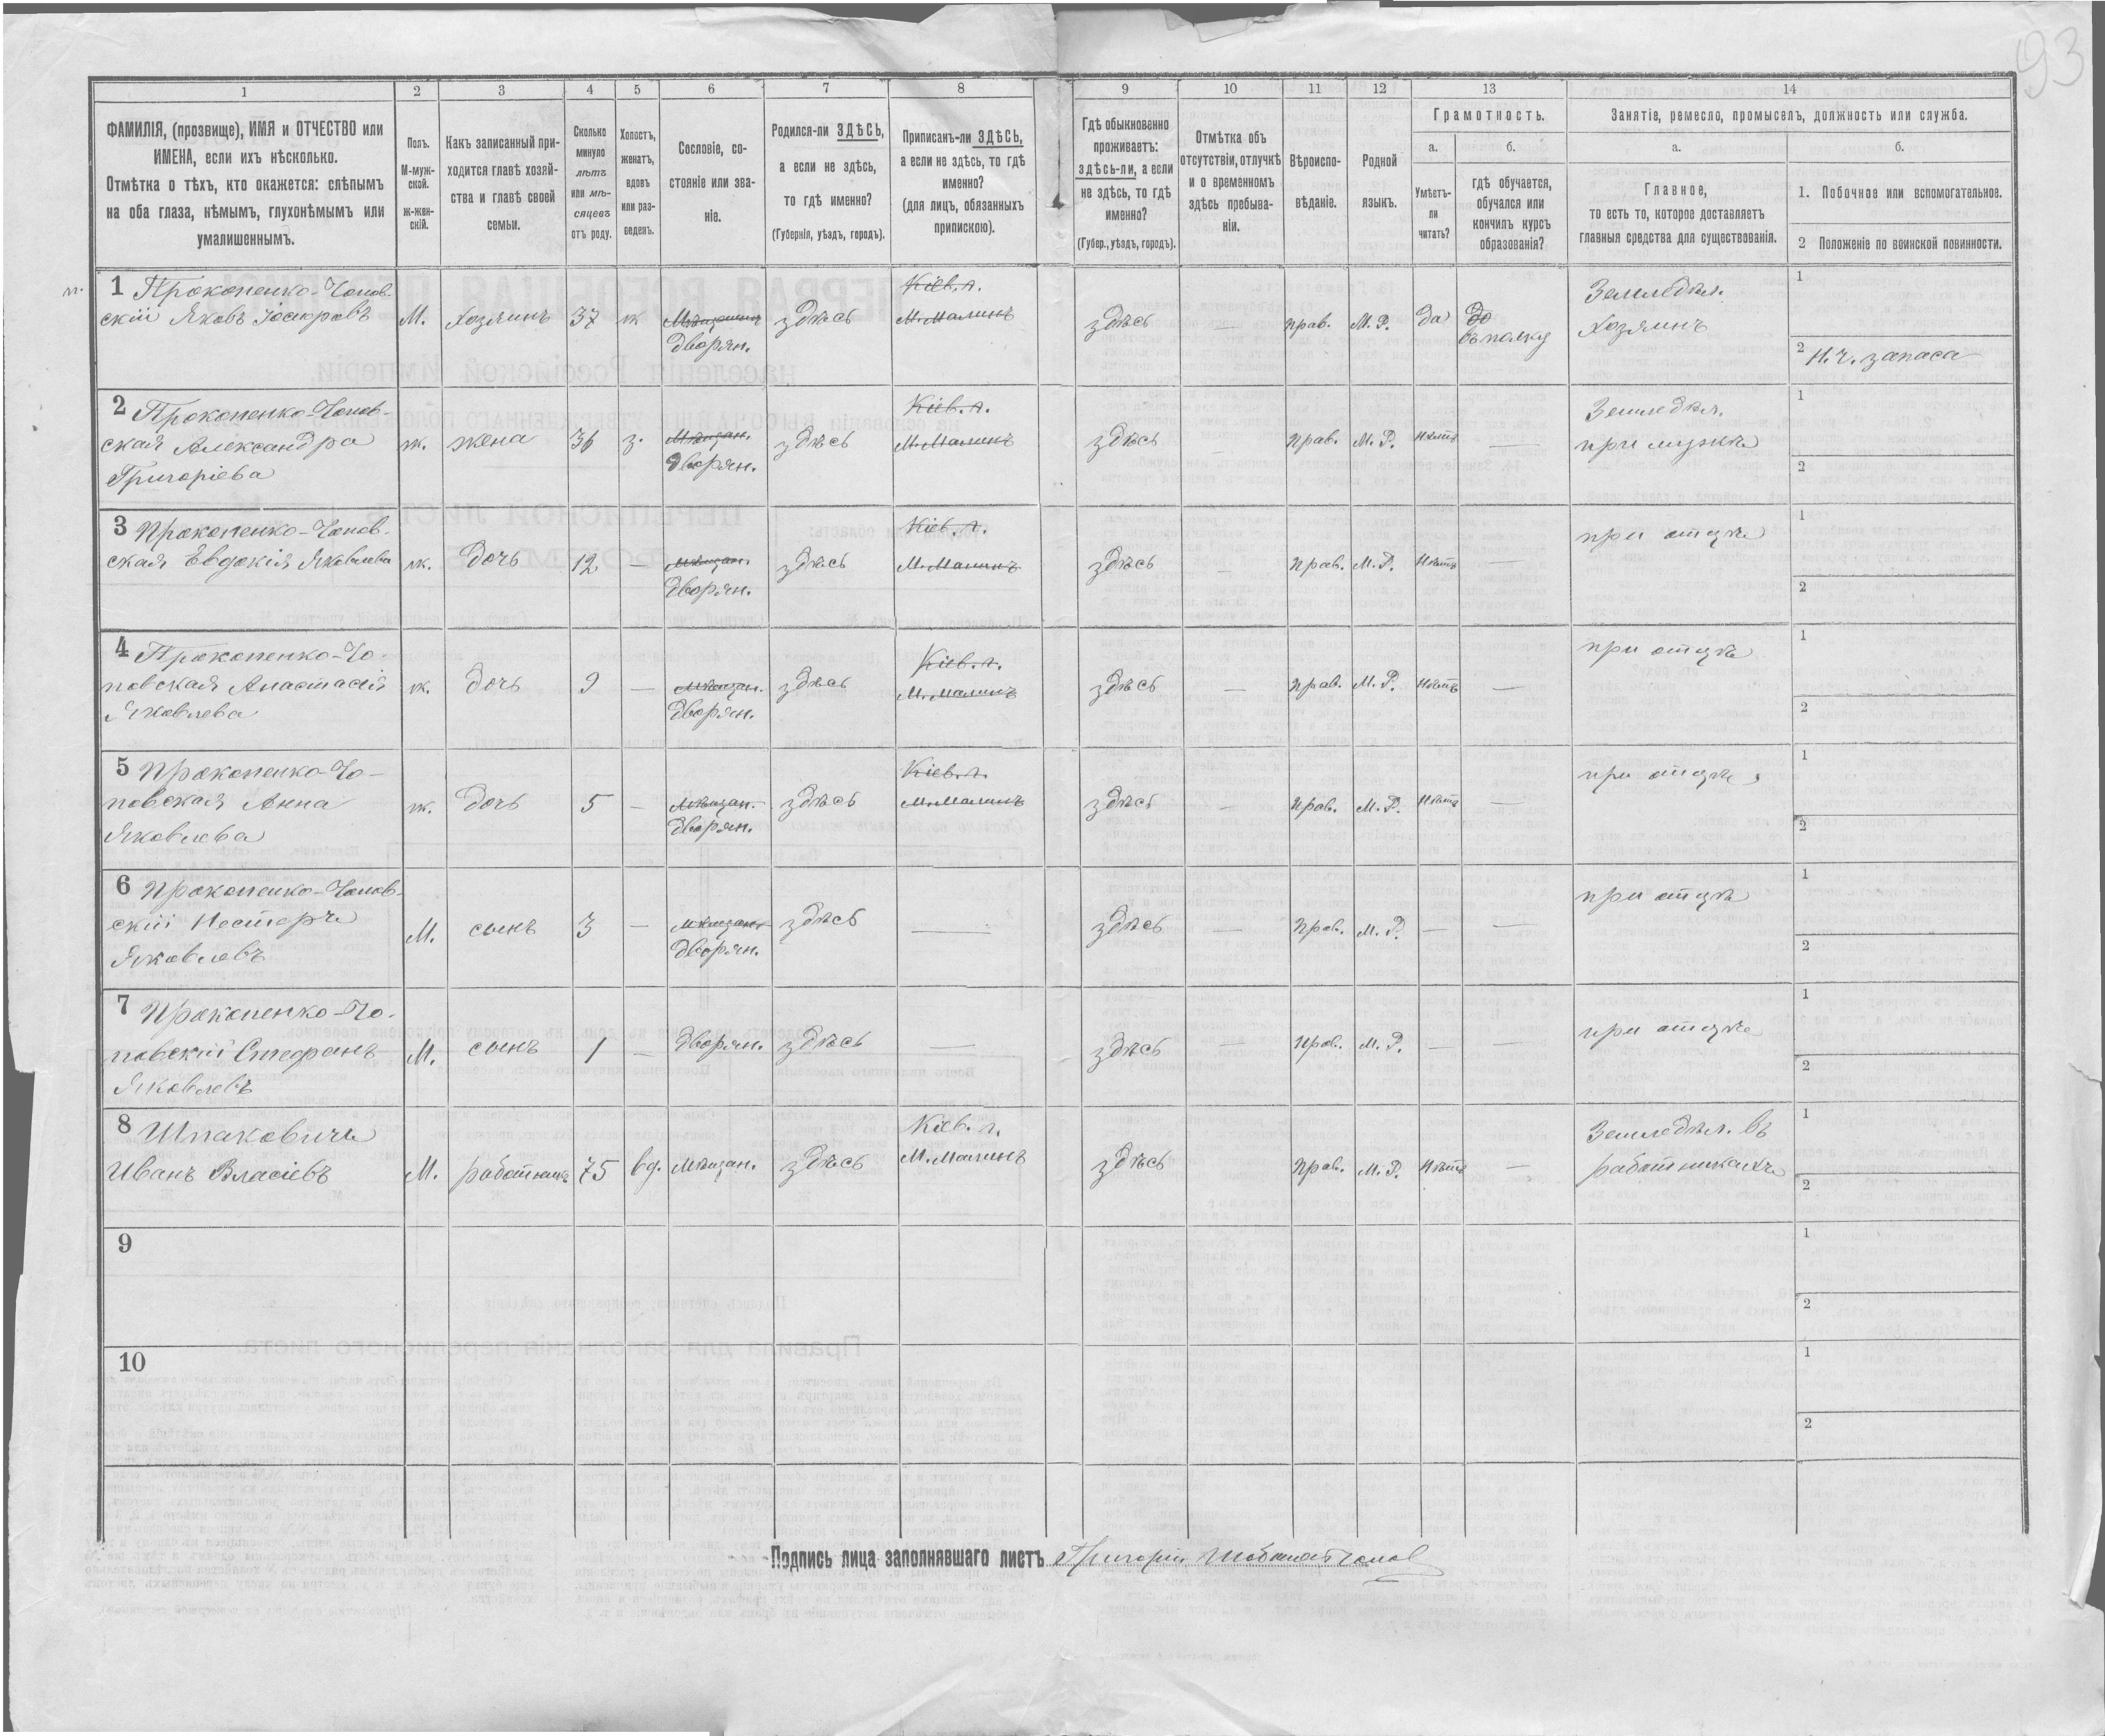 93
1 2 3 4 5 6 7 8 9 10 11 12 13 14
ФАМИЛІЯ, (прозвище), ИМЯ и ОТЧЕСТВО или
ИМЕНА, если ихъ нѣсколько.
Отмѣтка о тѣхъ, кто окажется: слѣпымъ
на оба глаза, нѣмымъ, глухонѣмымъ или
умалишеннымъ.
Полъ.
М-муж-
ской.
Ж-жен-
скій.
Какъ записанный при-
ходится главѣ хозяй-
ства и главѣ своей
семьи.
Сколько
минуло
лѣтъ
или мѣ-
сяцевъ
отъ роду.
Холостъ,
женатъ,
вдовъ
или раз-
веденъ.
Сословіе, со-
стояніе или зва-
ніе.
Родился-ли ЗДѢСЬ,
а если не здѣсь,
то гдѣ именно?
(Губернія, уѣздъ, городъ).
Приписанъ-ли ЗДѢСЬ,
а если не здѣсь, то гдѣ
именно?
(для лицъ, обязанныхъ
припискою).
Гдѣ обыкновенно
проживаетъ:
здѣсь-ли, а если
не здѣсь, то гдѣ
именно?
(Губер., уѣздъ, городъ).
Отмѣтка объ
отсутствіи, отлучкѣ
и о временномъ
здѣсь пребыва-
ніи.
Вѣроиспо-
вѣданіе.
Родной
языкъ.
Грамотность.
а.
Умѣетъ-
ли
читать?
б.
гдѣ обучается,
обучался или
кончилъ курсъ
образованія?
Занятіе, ремесло, промыселъ, должность или служба.
а.
Главное,
то есть то, которое доставляетъ
главныя средства для существованія.
б.
1. Побочное или вспомогательное.
2 Положеніе по воинской повинности.
1 Прокопенко-Чопов- Кіев. г. Земледѣл. 1
скій Яковъ Іосифовъ М. Хозяинъ 37 ж Мѣщанинъ здѣсь М. Малинъ здѣсь — прав. М. Р. да до Хозяинъ
Дворян. въ полку 2 Н. ч. запаса
2 Прокопенко-Чопов- Кіев. г. Земледѣл. 1
ская Александра ж. жена 36 з. Мѣщан. здѣсь М. Малинъ здѣсь — прав. М. Р. Нѣтъ — при мужѣ
Григоріева Дворян. 2
3 Прокопенко-Чопов- Кіев. г. при отцѣ 1
ская Евдокія Яковлева ж. дочь 12 — Мѣщан. здѣсь М. Малинъ здѣсь — прав. М. Р. Нѣтъ —
Дворян. 2
4 Прокопенко-Чо- Кіев. г. при отцѣ 1
повская Анастасія ж. дочь 9 — Мѣщан. здѣсь М. Малинъ здѣсь — прав. М. Р. Нѣтъ —
Яковлева Дворян. 2
5 Прокопенко-Чо- Кіев. г. при отцѣ 1
повская Анна ж. дочь 5 — Мѣщан. здѣсь М. Малинъ здѣсь — прав. М. Р. Нѣтъ —
Яковлева Дворян. 2
6 Прокопенко-Чопов- при отцѣ 1
скій Несторъ М. сынъ 3 — Мѣщан. здѣсь — здѣсь — прав. М. Р. — —
Яковлевъ Дворян. 2
7 Прокопенко-Чо- при отцѣ 1
повскій Стефанъ М. сынъ 1 — Дворян. здѣсь — здѣсь — прав. М. Р. — —
Яковлевъ 2
8 Шпаковичъ Кіев. г. Земледѣл. въ 1
Иванъ Власіевъ М. работникъ 75 вд. мѣщан. здѣсь М. Малинъ здѣсь прав. М. Р. Нѣтъ — работникахъ 2
9 1
2
10 1
2
Подпись лица заполнявшаго листъ Григорій